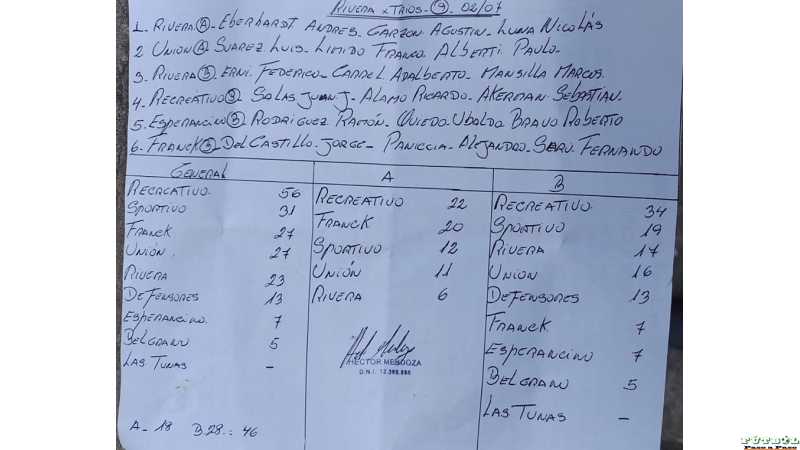 RIVERA x TRIOS. 9. 02/07
1. RIVERA A. EBERHARDT ANDRES. GARZON AGUSTIN. LUNA NICOLÁS
2 UNION A SUAREZ LUIS. FRANCO. ALBERTI. PAULO.
3. RIVERA B ERNI. FEDERICO. ADALBERTO. MANSILLA MARCOS.
4. RECREATIVO SALAS JUAN J. ALAMO RICARDO. AKERMAN SEBASTIAN.
5. ESPERANCINO B RODRIGUEZ RAMÓN. OVIEDO UBALDO BRAVO ROBERTO
6. FRANCK B DEL CASTILLO. JORGE. PANICCIA. ALEJANDRO. FERNANDO
GENERAL
RECREATIVO. 56
SPORTIVO 31
FRANCK 27
UNIÓN 27
RIVERA 23
DEFENSORES 13
ESPERANCINO. 7
BELGRANO 5
LAS TUNAS -
A. 18 B. 28.: 46
A
RECREATIVO 22
FRANCK 20
SPORTIVO 12
UNIÓN 11
RIVERA 6
HECTOR MENDOZA
D.N.I.
B
RECREATIVO. 34
SPORTIVO 19
RIVERA 17
UNION 16
DEFENSORES 13
FRANCK 7
ESPERANCINO 7
BELGRANO 5
LAS TUNAS -
FÚTBOL
Paso a Paso